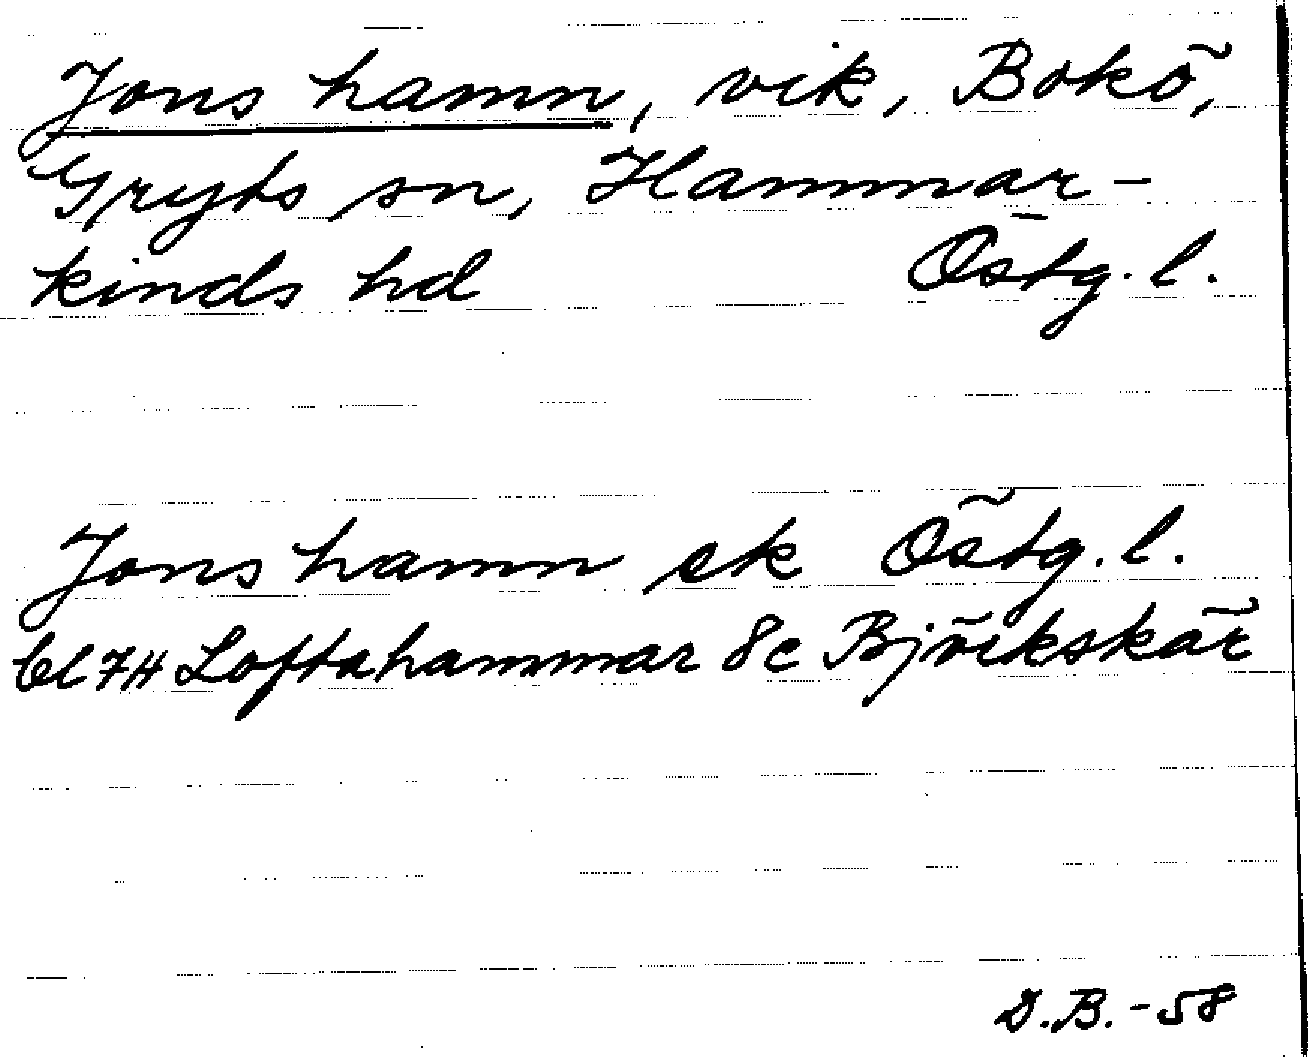 Jons hamn, vik, Bokö,
Gryts sn, Hammar-
kinds hd Östg. l.
Jons hamn ek Östg. l.
bl 74 Loftahammar 8c Björkskär
D.B. -58